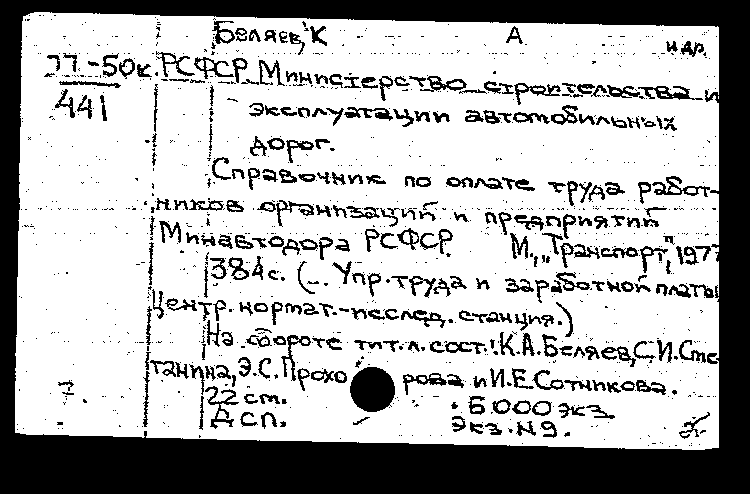 Беляев, К А и др.
77-50к. РСФСР. Министерство строительства и
441
эксплуатации автомобильных
дорог.
Справочник по оплате труда работ-
ников организаций и предприятий
Минавтодора РСФСР. М., "Транспорт", 1977
384с. (... Упр. труда и заработной платы
Центр. нормат.-исслед. станция.)
На обороте тит. л. сост.: К.А.Беляев, С.И.Сте-
танина, Э.С.Прохо рова и И.Е.Сотникова.
22 см. 5000 экз.
Дсп. Экз. № 9.